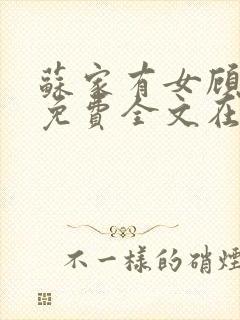 蘇家有女顧
免費全文在
不一樣的硝煙